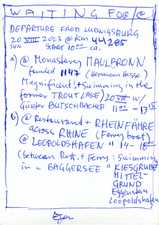 WAITING FOR @
DEPARTURE FROM LUDWIGSBURG
20 VIII 2023 @ Km 44285
SUN 10°° ca.
@ @ Monastery MAULBRONN
founded 1147 (Hermann Hesse)
Magnificent! + Swimming in the
former TROUT LAKE) 20 VIII w/
Günter BUTSCHBACHER 11°° –
b) @ Restaurant + RHEINFÄHRE
across RHINE (Ferry boat)
@ LEOPOLDSHAFEN 14 – 18°°
(between Rest. + Ferry: Swimming
in → BAGGERSEE "KIESGRUBE
MITTEL-
GRUND
Eggenstein
Leopoldshafen